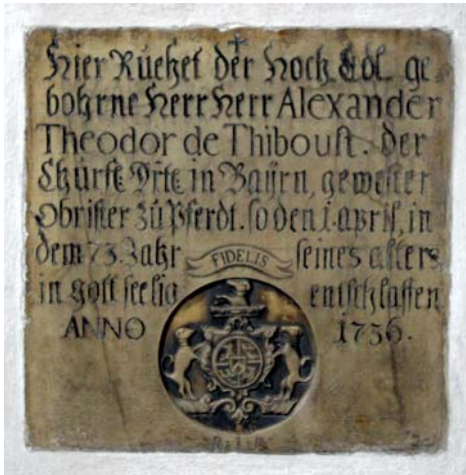 Hier Ruehet der Hoch Edl ge
bohrne Herr Herr Alexander
Theodor de Thiboust. der
Churft Drtt in Bayrn, gewester
Obrister zu Pferdt. so den 1. april, in
dem 73. Jahr FIDELIS seines alters
in gott seelig entschlaffen
ANNO 1756.